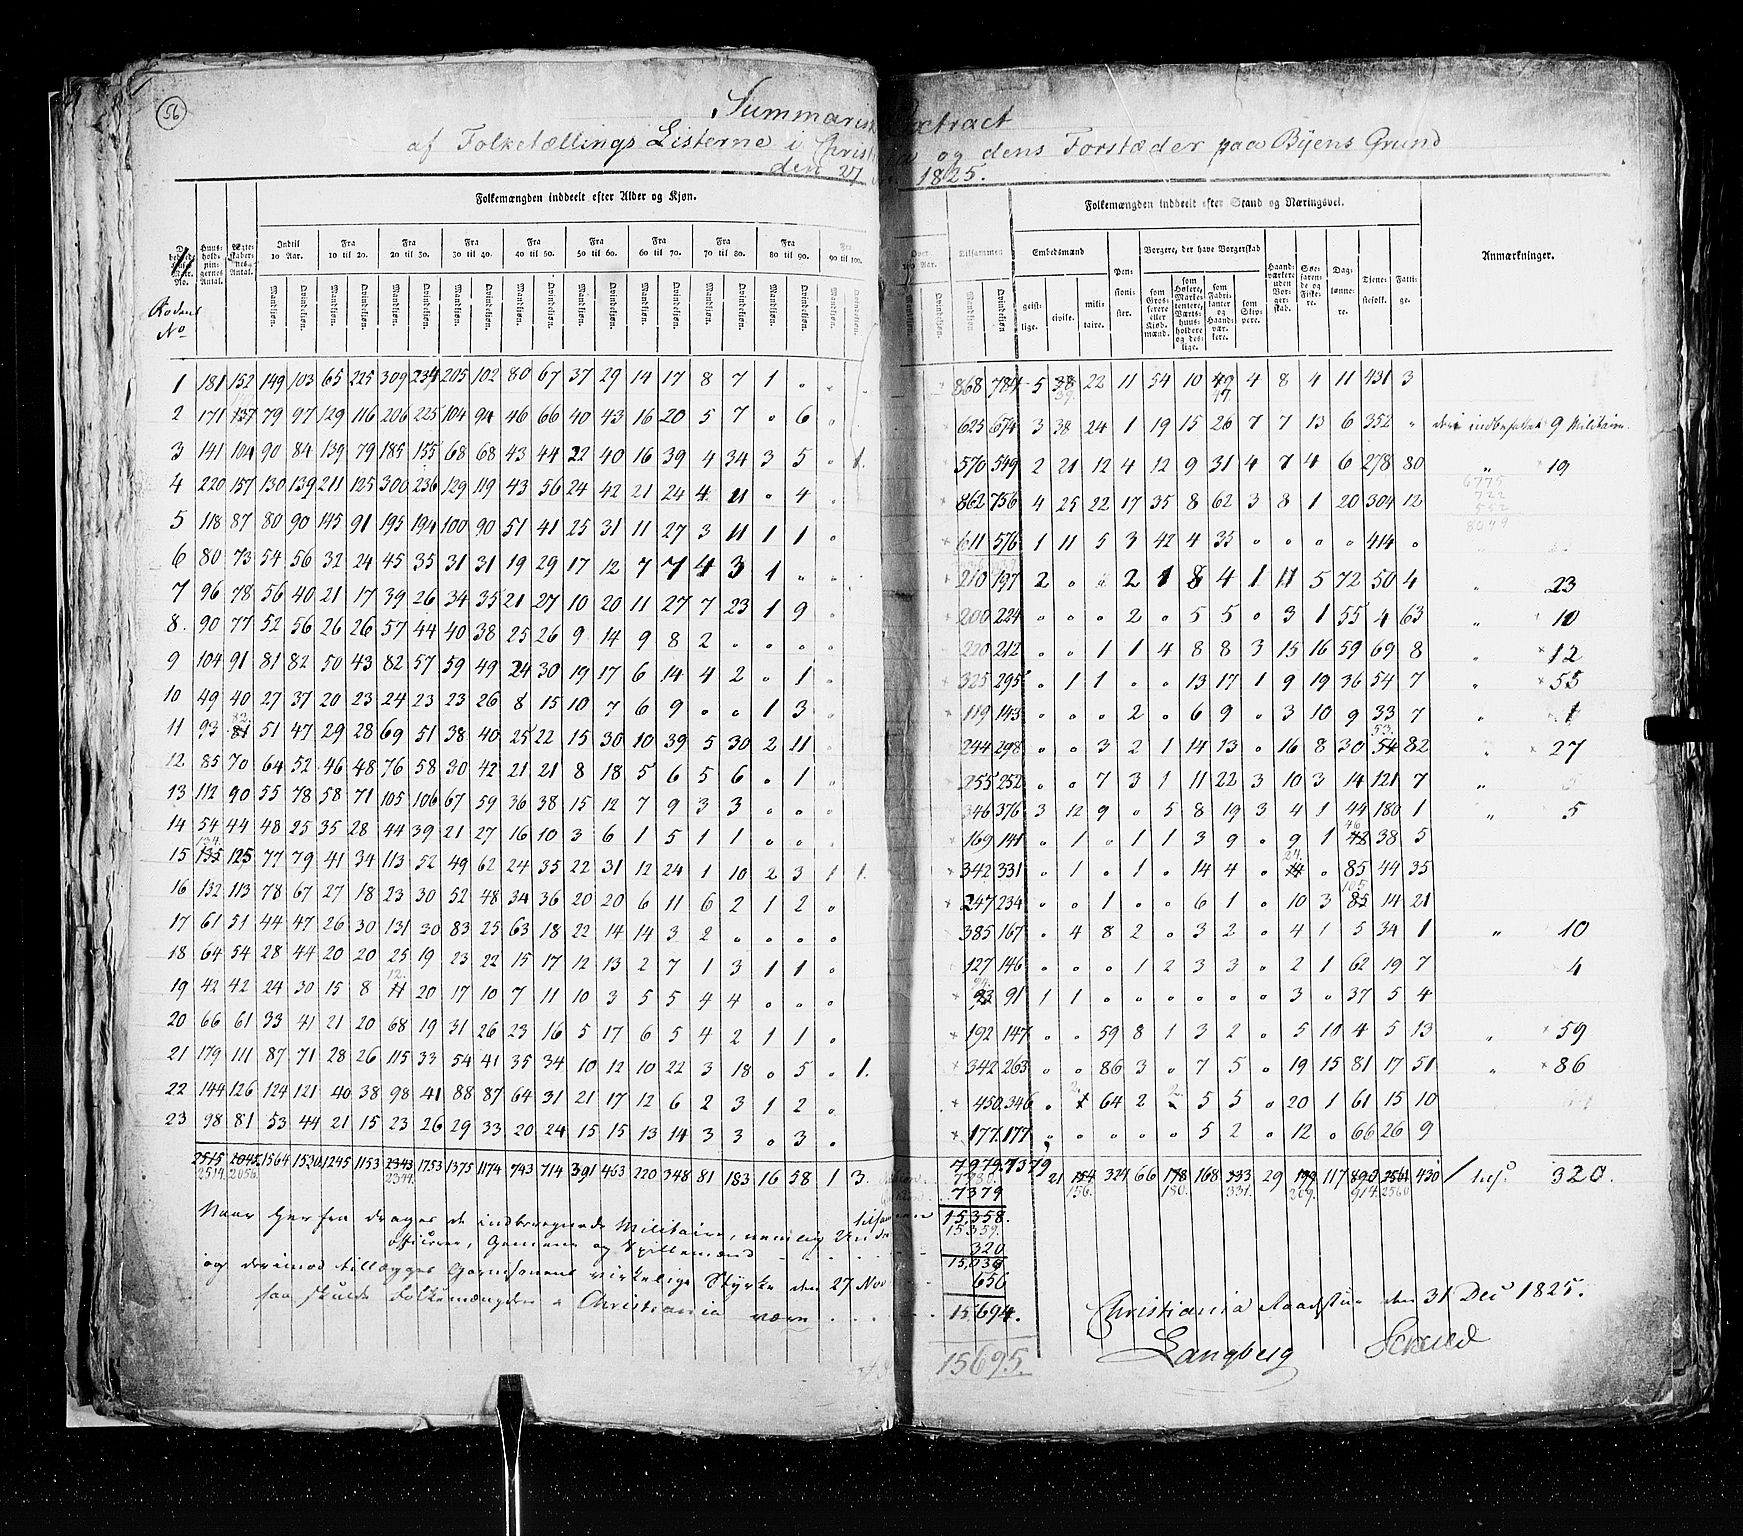 56
Summarisk Extract
af Folketællings Listerne i Christiania og dens Forstæder paa Byens Grund
den 27 1825.
Folkemængden inddeelt efter Alder og Kjøn.
Folkemængden inddeelt efter Stand og Næringsvei.
Huus-holdningernes Antal.
Ægteskabernes Antal.
Indtil 10 Aar. Fra 10 til 20. Fra 20 til 30. Fra 30 til 40. Fra 40 til 50. Fra 50 til 60. Fra 60 til 70. Fra 70 til 80. Fra 80 til 90. Fra 90 til 100. Over 100 Aar. Tilsammen
Mandkjøn. Qvindekjøn.
Embedsmænd geistlige. civile. militaire. Pensionister.
Borgere, der have Borgerskab som Grosserere eller Kjøbmænd. som Høkere, Marketentere, Værtshuusholdere og deslige. som Fabrikanter og Haandværkere. som Skippere.
Haandværkere uden Borgerskab. Søefarende og Fiskere. Daglønnere. Tjenestefolk. Fattige. Anmærkninger.
Rodens No
1 181 152 149 103 65 225 309 234 205 102 80 67 37 29 14 17 8 7 1 868 784 5 38 22 11 54 10 49 4 8 4 11 431 3
2 171 137 79 97 129 116 206 225 104 94 46 66 40 43 16 20 5 7 6 625 674 3 38 24 1 19 15 26 7 7 13 6 352 9 Militaire.
3 141 104 90 84 139 79 185 155 68 68 43 44 22 40 16 39 4 34 3 5 1. 570 549 2 21 12 4 12 9 31 4 7 4 6 278 80 " 19
4 220 157 130 139 211 125 300 236 129 119 43 56 24 42 21 24 4 11 4 862 756 4 25 22 17 35 8 62 3 8 1 20 304 12
6775
722
552
8049
5 118 87 80 90 145 91 195 194 100 90 51 41 25 31 11 27 3 11 1 1 611 576 1 11 5 3 42 4 35 414
6 80 73 54 56 32 24 45 35 31 31 19 29 17 12 7 7 4 3 1 210 197 2 2 1 8 4 1 11 5 72 50 4 " 23
7 96 78 56 40 21 17 39 26 34 35 21 27 10 20 11 27 7 23 1 9 200 224 2 5 5 3 1 55 4 63 " 10
8. 90 77 52 56 26 26 57 44 40 38 25 26 9 14 9 8 2 220 212 1 1 4 8 8 3 15 16 59 69 8 " 12
9 104 91 81 82 50 43 82 57 59 49 24 30 19 17 6 14 4 2 1 325 295 1 1 13 17 1 9 19 36 54 7 " 55
10 49 40 27 37 20 23 24 23 23 26 8 15 10 7 6 9 1 3 119 143 2 6 9 3 10 9 33 7 " 1
11 93 81 82. 51 47 29 28 69 51 38 40 25 22 15 30 10 39 5 30 2 11 244 298 3 2 1 14 13 16 8 30 54 53. 82 " 27
12 85 70 64 52 46 48 76 58 30 42 21 21 8 18 5 6 5 6 1 255 252 7 3 1 11 22 3 10 3 14 121 7
13 112 90 55 78 58 71 105 106 67 59 36 38 15 12 7 9 3 3 346 376 3 12 9 5 8 19 3 4 1 44 180 1 " 5
14 54 44 48 25 35 28 44 39 21 27 16 10 3 6 1 5 1 1 169 141 1 1 1 3 9 9 1 38 5
15 135 134. 125 77 79 41 34 113 52 49 62 24 35 22 31 12 24 1 10 2 3 1 1. 342 331 1 1 14 4 14 24. 85 44 35
16 132 113 78 67 27 18 23 30 52 48 34 36 20 20 6 11 6 2 1 2 247 234 1 6 1 10 3 85 105. 14 21
17 61 51 44 47 26 30 131 30 83 25 63 18 22 14 14 3 2 385 167 4 8 2 3 2 4 1 5 34 1 " 10
18 64 54 28 44 20 20 25 19 23 22 15 17 12 13 2 7 1 3 1 1 127 146 1 2 3 3 2 1 62 19 7 4
19 42 42 24 30 15 8 11 12. 20 17 10 7 11 10 3 5 5 4 4 93 94. 91 1 1 3 37 5 4
20 66 61 33 41 21 20 68 19 31 26 23 16 5 17 6 5 4 2 1 1 192 147 59 8 1 3 2 5 11 4 5 13 " 59
21 179 111 87 71 28 26 115 33 54 41 35 34 10 12 10 22 3 18 5 1. 342 263 86 3 7 5 19 15 81 17 51 " 86
22 144 126 124 121 40 38 98 41 88 87 64 31 21 17 12 6 2 3 1 2 450 346 1 2. 64 2 2. 5 5 20 1 61 15 10
23 98 81 53 44 21 15 23 26 29 33 20 24 15 15 13 14 3 3 3 177 177 5 2 12 66 26 9
2515 2045 1564 1530 1245 1153 2343 1753 1375 1174 743 714 391 463 220 348 81 183 16 58 1 3. 7979. 7379 21 154 324 66 178 168 333 29 199 117 893 2561 430 320.
2514. 2056. 2344. 7980. 156. 180. 331. 209. 914 2560
7379
15,358.
15,359.
320
15,039
656
15,694.
15695.
Naar herfra drages de indberegnede Militaire, nemlig Under
officerer, Gemene og Spillemænd
og derimod tillægges Garnisonens virkelige Styrke den 27 Nov
saa skulde Folkemængden i Christiania være
Christiania Raadstue den 31 Dec 1825.
Langberg